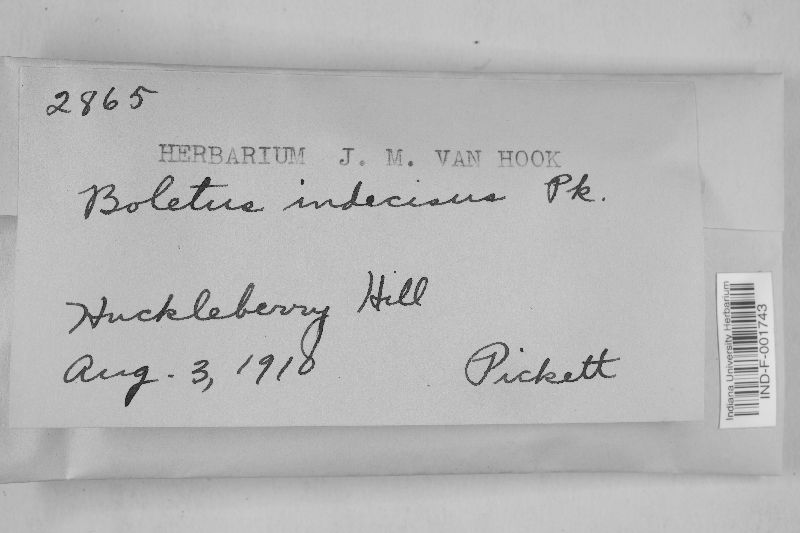 2865
HERBARIUM J. M. VAN HOOK
Boletus indecisus Pk.
Huckleberry Hill
Aug. 3, 1910 Pickett
Indiana University Herbarium
IND-F-001743